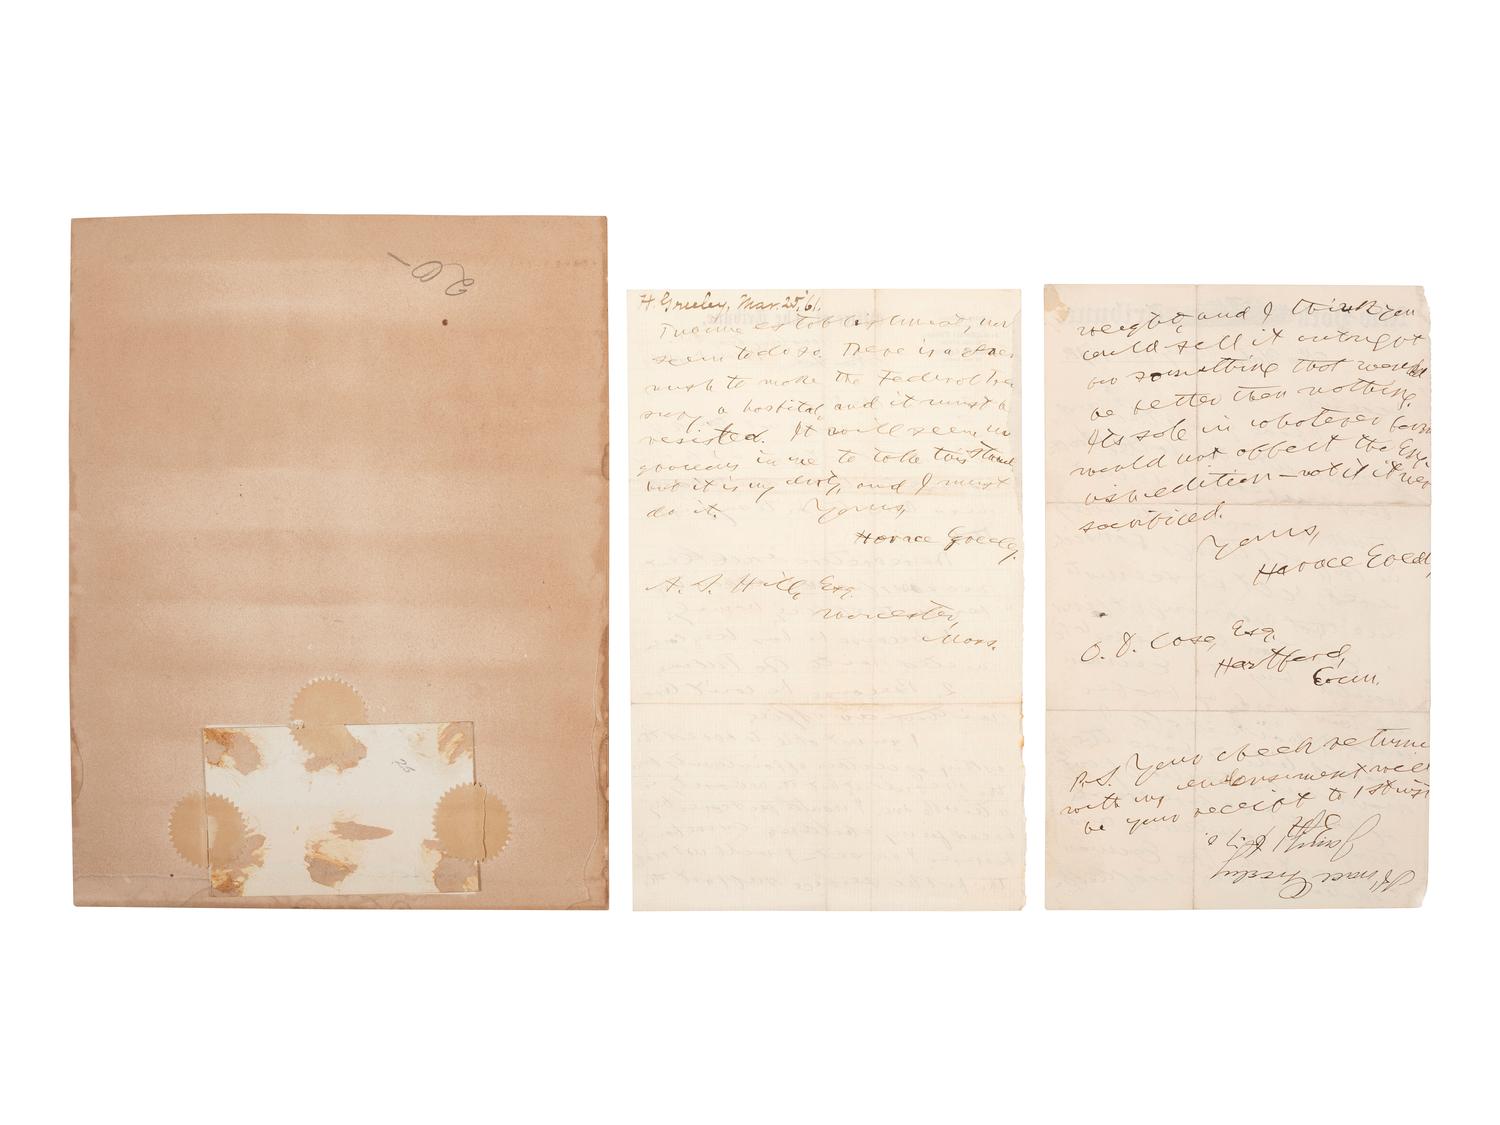 20-
25
H. Greeley, Mar. 25, '61.
Tribune establishment, nor
seem to do so. There is a
wish to make the Federal
a hospital, and it must b
resisted. It will seem un
gracious in me to take this stand
but it is my duty, and I must
do it.
Yours,
Horace Greeley.
A. S. Hill, Esq.
Worcester,
Mass.
weight, and I think you
could sell it outright
for something that would
be better than nothing.
Its sale in whatever form
would not affect the Eng-
lish edition—not if it wer
sacrificed.
Yours,
Horace Greeley,
O. D. Case, Esq.
Hartford,
Conn.
P.S. Your check returne
with my endorsement will
be your receipt to 1st inst
Horace Greeley